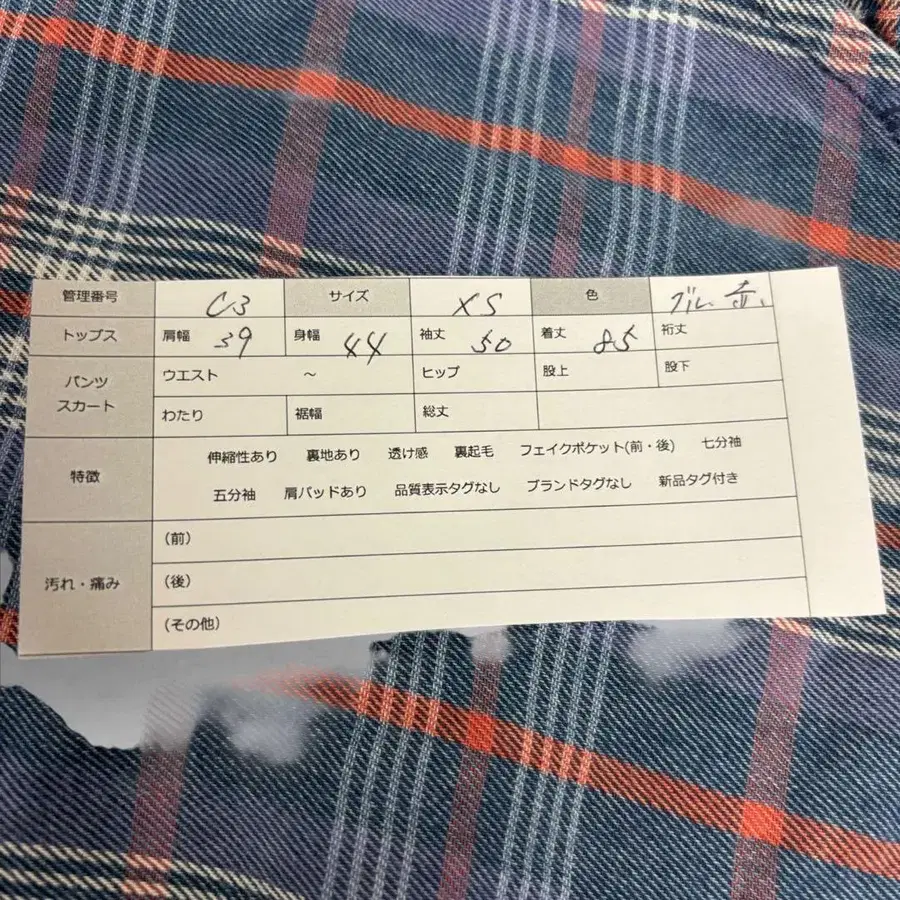 管理番号 C3 サイズ XS 色 ブル、赤、
トップス 肩幅 39 身幅 44 袖丈 50 着丈 85 裄丈
パンツ ウエスト ～ ヒップ 股上 股下
スカート わたり 裾幅 総丈
伸縮性あり 裏地あり 透け感 裏起毛 フェイクポケット(前・後) 七分袖
特徴
五分袖 肩パッドあり 品質表示タグなし ブランドタグなし 新品タグ付き
(前)
汚れ・痛み (後)
(その他)